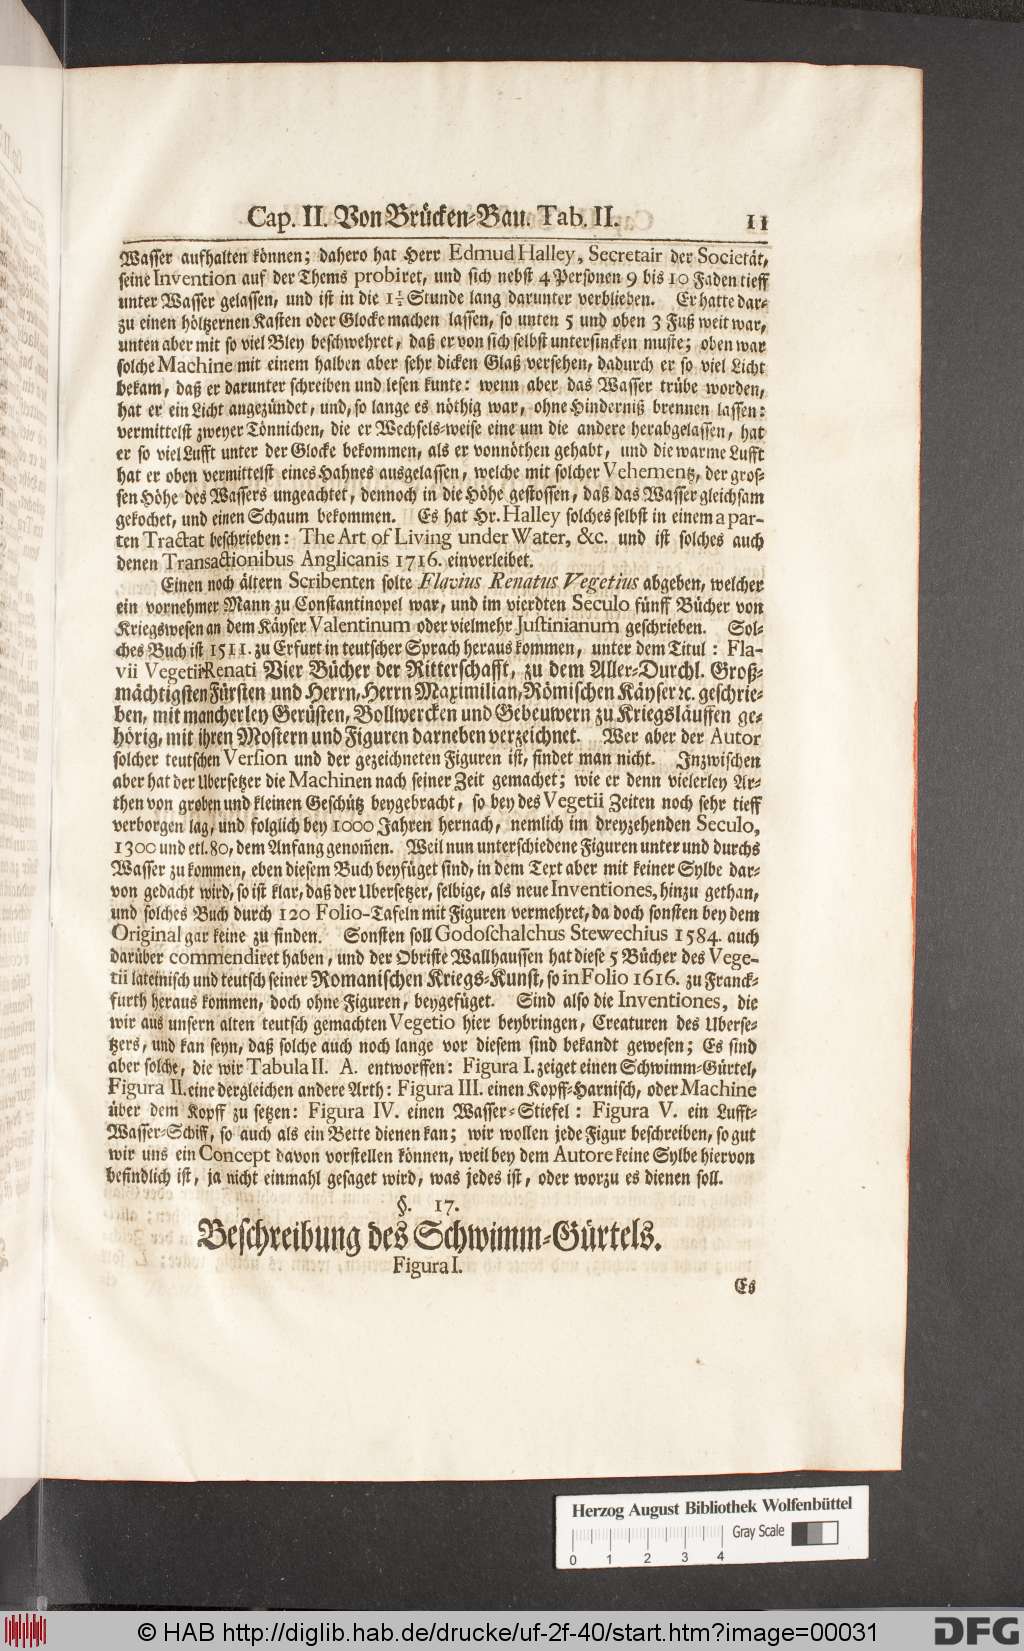 Cap. II. Von Brücken-Bau. Tab. II. 11
Wasser aufhalten können; dahero hat Herr Edmud Halley, Secretair der Societät,
seine Invention auf der Thems probiret, und sich nebst 4 Personen 9 bis 10 Faden tieff
unter Wasser gelassen, und ist in die 1½ Stunde lang darunter verblieben. Er hatte dar-
zu einen höltzernen Kasten oder Glocke machen lassen, so unten 5 und oben 3 Fuß weit war,
unten aber mit so viel Bley beschwehret, daß er von sich selbst untersincken muste; oben war
solche Machine mit einem halben aber sehr dicken Glaß versehen, dadurch er so viel Licht
bekam, daß er darunter schreiben und lesen kunte: wenn aber das Wasser trübe worden,
hat er ein Licht angezündet, und, so lange es nöthig war, ohne Hinderniß brennen lassen:
vermittelst zweyer Tönnichen, die er Wechsels-weise eine um die andere herabgelassen, hat
er so viel Lufft unter der Glocke bekommen, als er vonnöthen gehabt, und die warme Lufft
hat er oben vermittelst eines Hahnes ausgelassen, welche mit solcher Vehementz, der gros-
sen Höhe des Wassers ungeachtet, dennoch in die Höhe gestossen, daß das Wasser gleichsam
gekochet, und einen Schaum bekommen. Es hat Hr. Halley solches selbst in einem a par-
ten Tractat beschrieben: The Art of Living under Water, &c. und ist solches auch
denen Transactionibus Anglicanis 1716. einverleibet.
Einen noch ältern Scribenten solte Flavius Renatus Vegetius abgeben, welcher
ein vornehmer Mann zu Constantinopel war, und im vierdten Seculo fünff Bücher von
Kriegswesen an dem Käyser Valentinum oder vielmehr Justinianum geschrieben. Sol-
ches Buch ist 1511. zu Erfurt in teutscher Sprach heraus kommen, unter dem Titul: Fla-
vii Vegetii Renati Vier Bücher der Ritterschafft, zu dem Aller-Durchl. Groß-
mächtigsten Fürsten und Herrn, Herrn Maximilian, Römischen Käyser ꝛc. geschrie-
ben, mit mancherley Gerüsten, Bollwercken und Gebeuwern zu Kriegsläuffen ge-
hörig, mit ihren Mostern und Figuren darneben verzeichnet. Wer aber der Autor
solcher teutschen Version und der gezeichneten Figuren ist, findet man nicht. Inzwischen
aber hat der Ubersetzer die Machinen nach seiner Zeit gemachet; wie er denn vielerley Ar-
then von groben und kleinen Geschütz beygebracht, so bey des Vegetii Zeiten noch sehr tieff
verborgen lag, und folglich bey 1000 Jahren hernach, nemlich im dreyzehenden Seculo,
1300 und etl. 80, dem Anfang genom̃en. Weil nun unterschiedene Figuren unter und durchs
Wasser zu kommen, eben diesem Buch beyfüget sind, in dem Text aber mit keiner Sylbe dar-
von gedacht wird, so ist klar, daß der Ubersetzer, selbige, als neue Inventiones, hinzu gethan,
und solches Buch durch 120 Folio-Tafeln mit Figuren vermehret, da doch sonsten bey dem
Original gar keine zu finden. Sonsten soll Godoschalchus Stewechius 1584. auch
darüber commendiret haben, und der Obriste Wallhaussen hat diese 5 Bücher des Vege-
tii lateinisch und teutsch seiner Romanischen Kriegs-Kunst, so in Folio 1616. zu Franck-
furth heraus kommen, doch ohne Figuren, beygefüget. Sind also die Inventiones, die
wir aus unsern alten teutsch gemachten Vegetio hier beybringen, Creaturen des Uberse-
tzers, und kan seyn, daß solche auch noch lange vor diesem sind bekandt gewesen; Es sind
aber solche, die wir Tabula II. A. entworffen: Figura I. zeiget einen Schwimm-Gürtel,
Figura II. eine dergleichen andere Arth: Figura III. einen Kopff-Harnisch, oder Machine
über dem Kopff zu setzen: Figura IV. einen Wasser-Stiefel: Figura V. ein Lufft-
Wasser-Schiff, so auch als ein Bette dienen kan; wir wollen jede Figur beschreiben, so gut
wir uns ein Concept davon vorstellen können, weil bey dem Autore keine Sylbe hiervon
befindlich ist, ja nicht einmahl gesaget wird, was jedes ist, oder worzu es dienen soll.
§. 17.
Beschreibung des Schwimm-Gürtels.
Figura I.
Es
Herzog August Bibliothek Wolfenbüttel
Gray Scale
0 1 2 3 4
© HAB http://diglib.hab.de/drucke/uf-2f-40/start.htm?image=00031
DFG